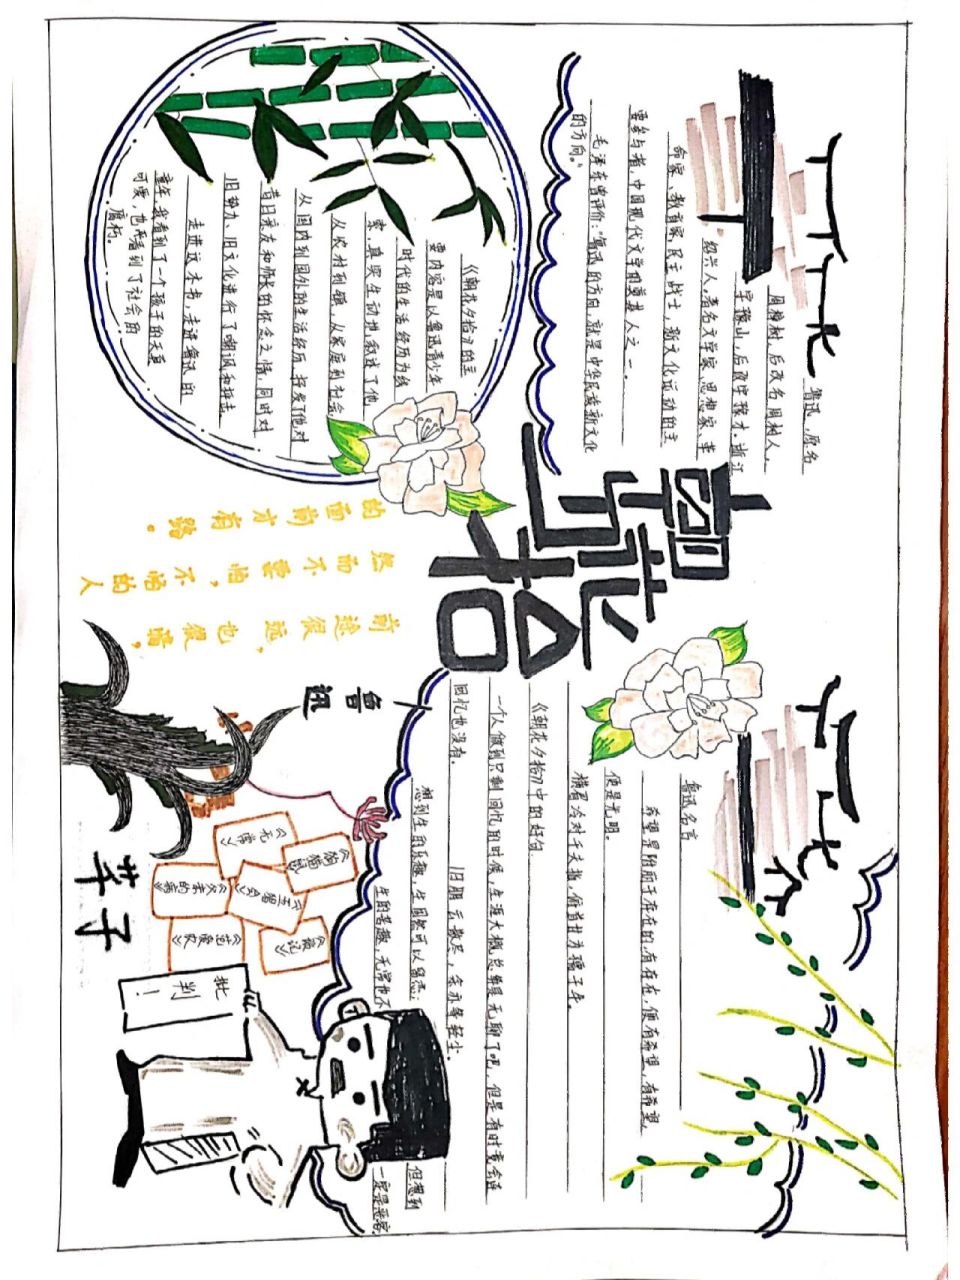 鲁迅，原名
周樟树，后改名周树人，
字豫山，后改字豫才，浙江
绍兴人。著名文学家、思想家、革
命家、教育家，民主战士，新文化运动的主
要参与者，中国现代文学的奠基人之一。
毛泽东曾评价："鲁迅的方向，就是中华民族新文化
的方向。"
朝花夕拾
鲁迅名言
希望是附丽于存在的，有存在，便有希望，有希望，
便是光明。
横眉冷对千夫指，俯首甘为孺子牛。
《朝花夕拾》中的好句
一个人做到只剩回忆的时候，生涯大概总要算是无聊了吧，但是有时竟会连
回忆也没有。
旧朋云散尽，余亦等轻尘。
想到生的乐趣，生固然可以留恋；
但想到
生的苦趣，无常也不
一定是恶客。
《朝花夕拾》的主
要内容是以鲁迅青少年
时代的生活经历为线
索，真实生动地叙述了他
从农村到镇，从家庭到社会
从国内到国外的生活经历，抒发了他对
昔日亲友和师长的怀念之情，同时对
旧势力、旧文化进行了嘲讽和抨击
走进这本书，走进鲁迅的
童年，我看到了一个孩子的天真
可爱，也再看到了社会的
腐朽。
前途很远，也很暗，
然而不要怕，不怕的人
的面前才有路。
一鲁迅
《狗猫鼠》
《无常》
《琐记》
《五猖会》
《父亲的病》
《范爱农》
批判！